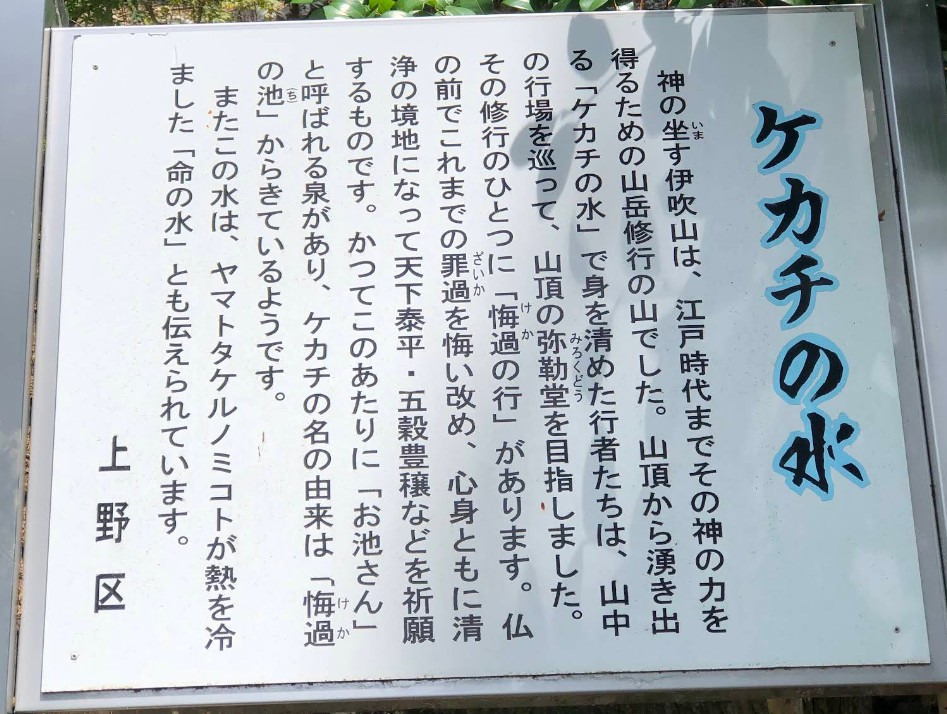 ケカチの水
神の坐す伊吹山は、江戸時代までその神の力を
いま
得るための山岳修行の山でした。山頂から湧き出
る「ケカチの水」で身を清めた行者たちは、山中
の行場を巡って、山頂の弥勒堂を目指しました。
みろくどう
その修行のひとつに「悔過の行」があります。仏
けか
の前でこれまでの罪過を悔い改め、心身ともに清
ざいか
浄の境地になって天下泰平・五穀豊穣などを祈願
するものです。かつてこのあたりに「お池さん」
と呼ばれる泉があり、ケカチの名の由来は「悔過
けか
の池」からきているようです。
(ち)
またこの水は、ヤマトタケルノミコトが熱を冷
ました「命の水」とも伝えられています。
上野区